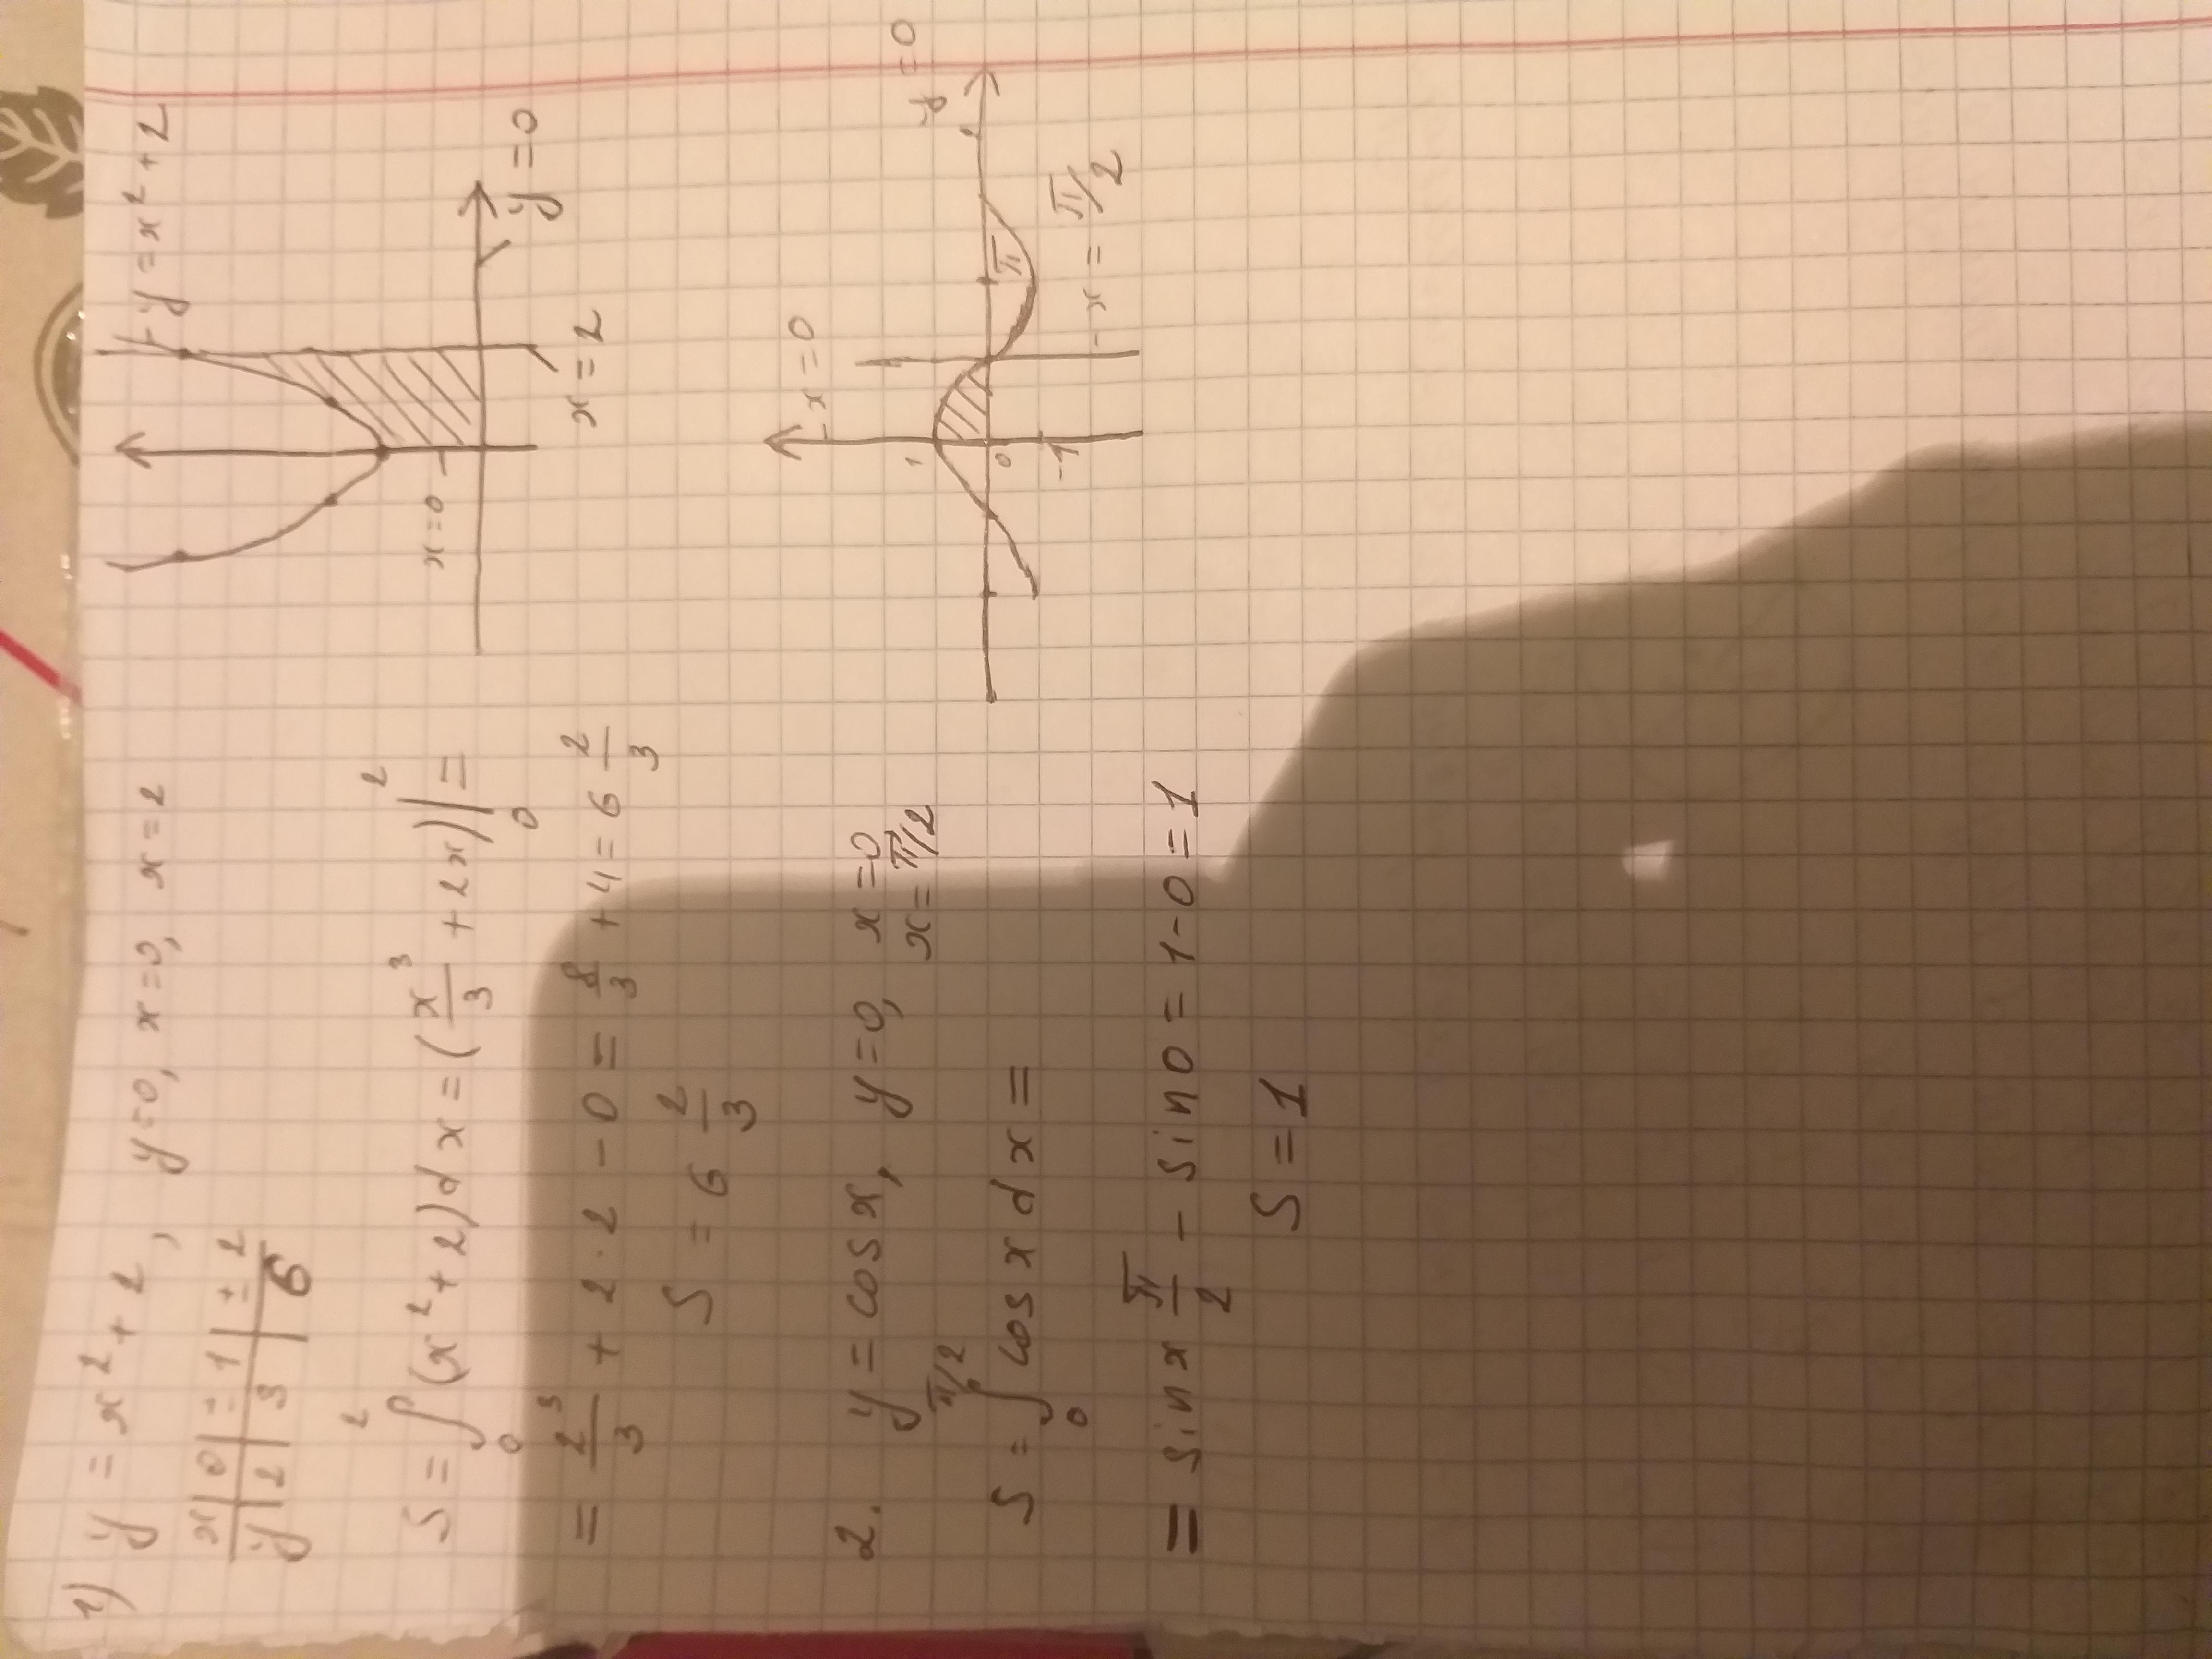 1) y = x² + 2, y=0, x=0, x=2
x | 0 | ± 1 | ± 2
y | 2 | 3 | 6
S = ∫₀² (x² + 2) dx = (x³/3 + 2x) |₀² =
= 2³/3 + 2 · 2 − 0 = 8/3 + 4 = 6 2/3
S = 6 2/3
y = x² + 2
x = 0
y = 0
x = 2
2. y = cos x, y = 0, x = 0
x = π/2
S = ∫₀^π/2 cos x dx =
= sin x π/2 − sin 0 = 1 − 0 = 1
S = 1
x = 0
y = 0
1
0
π
-1
x = π/2